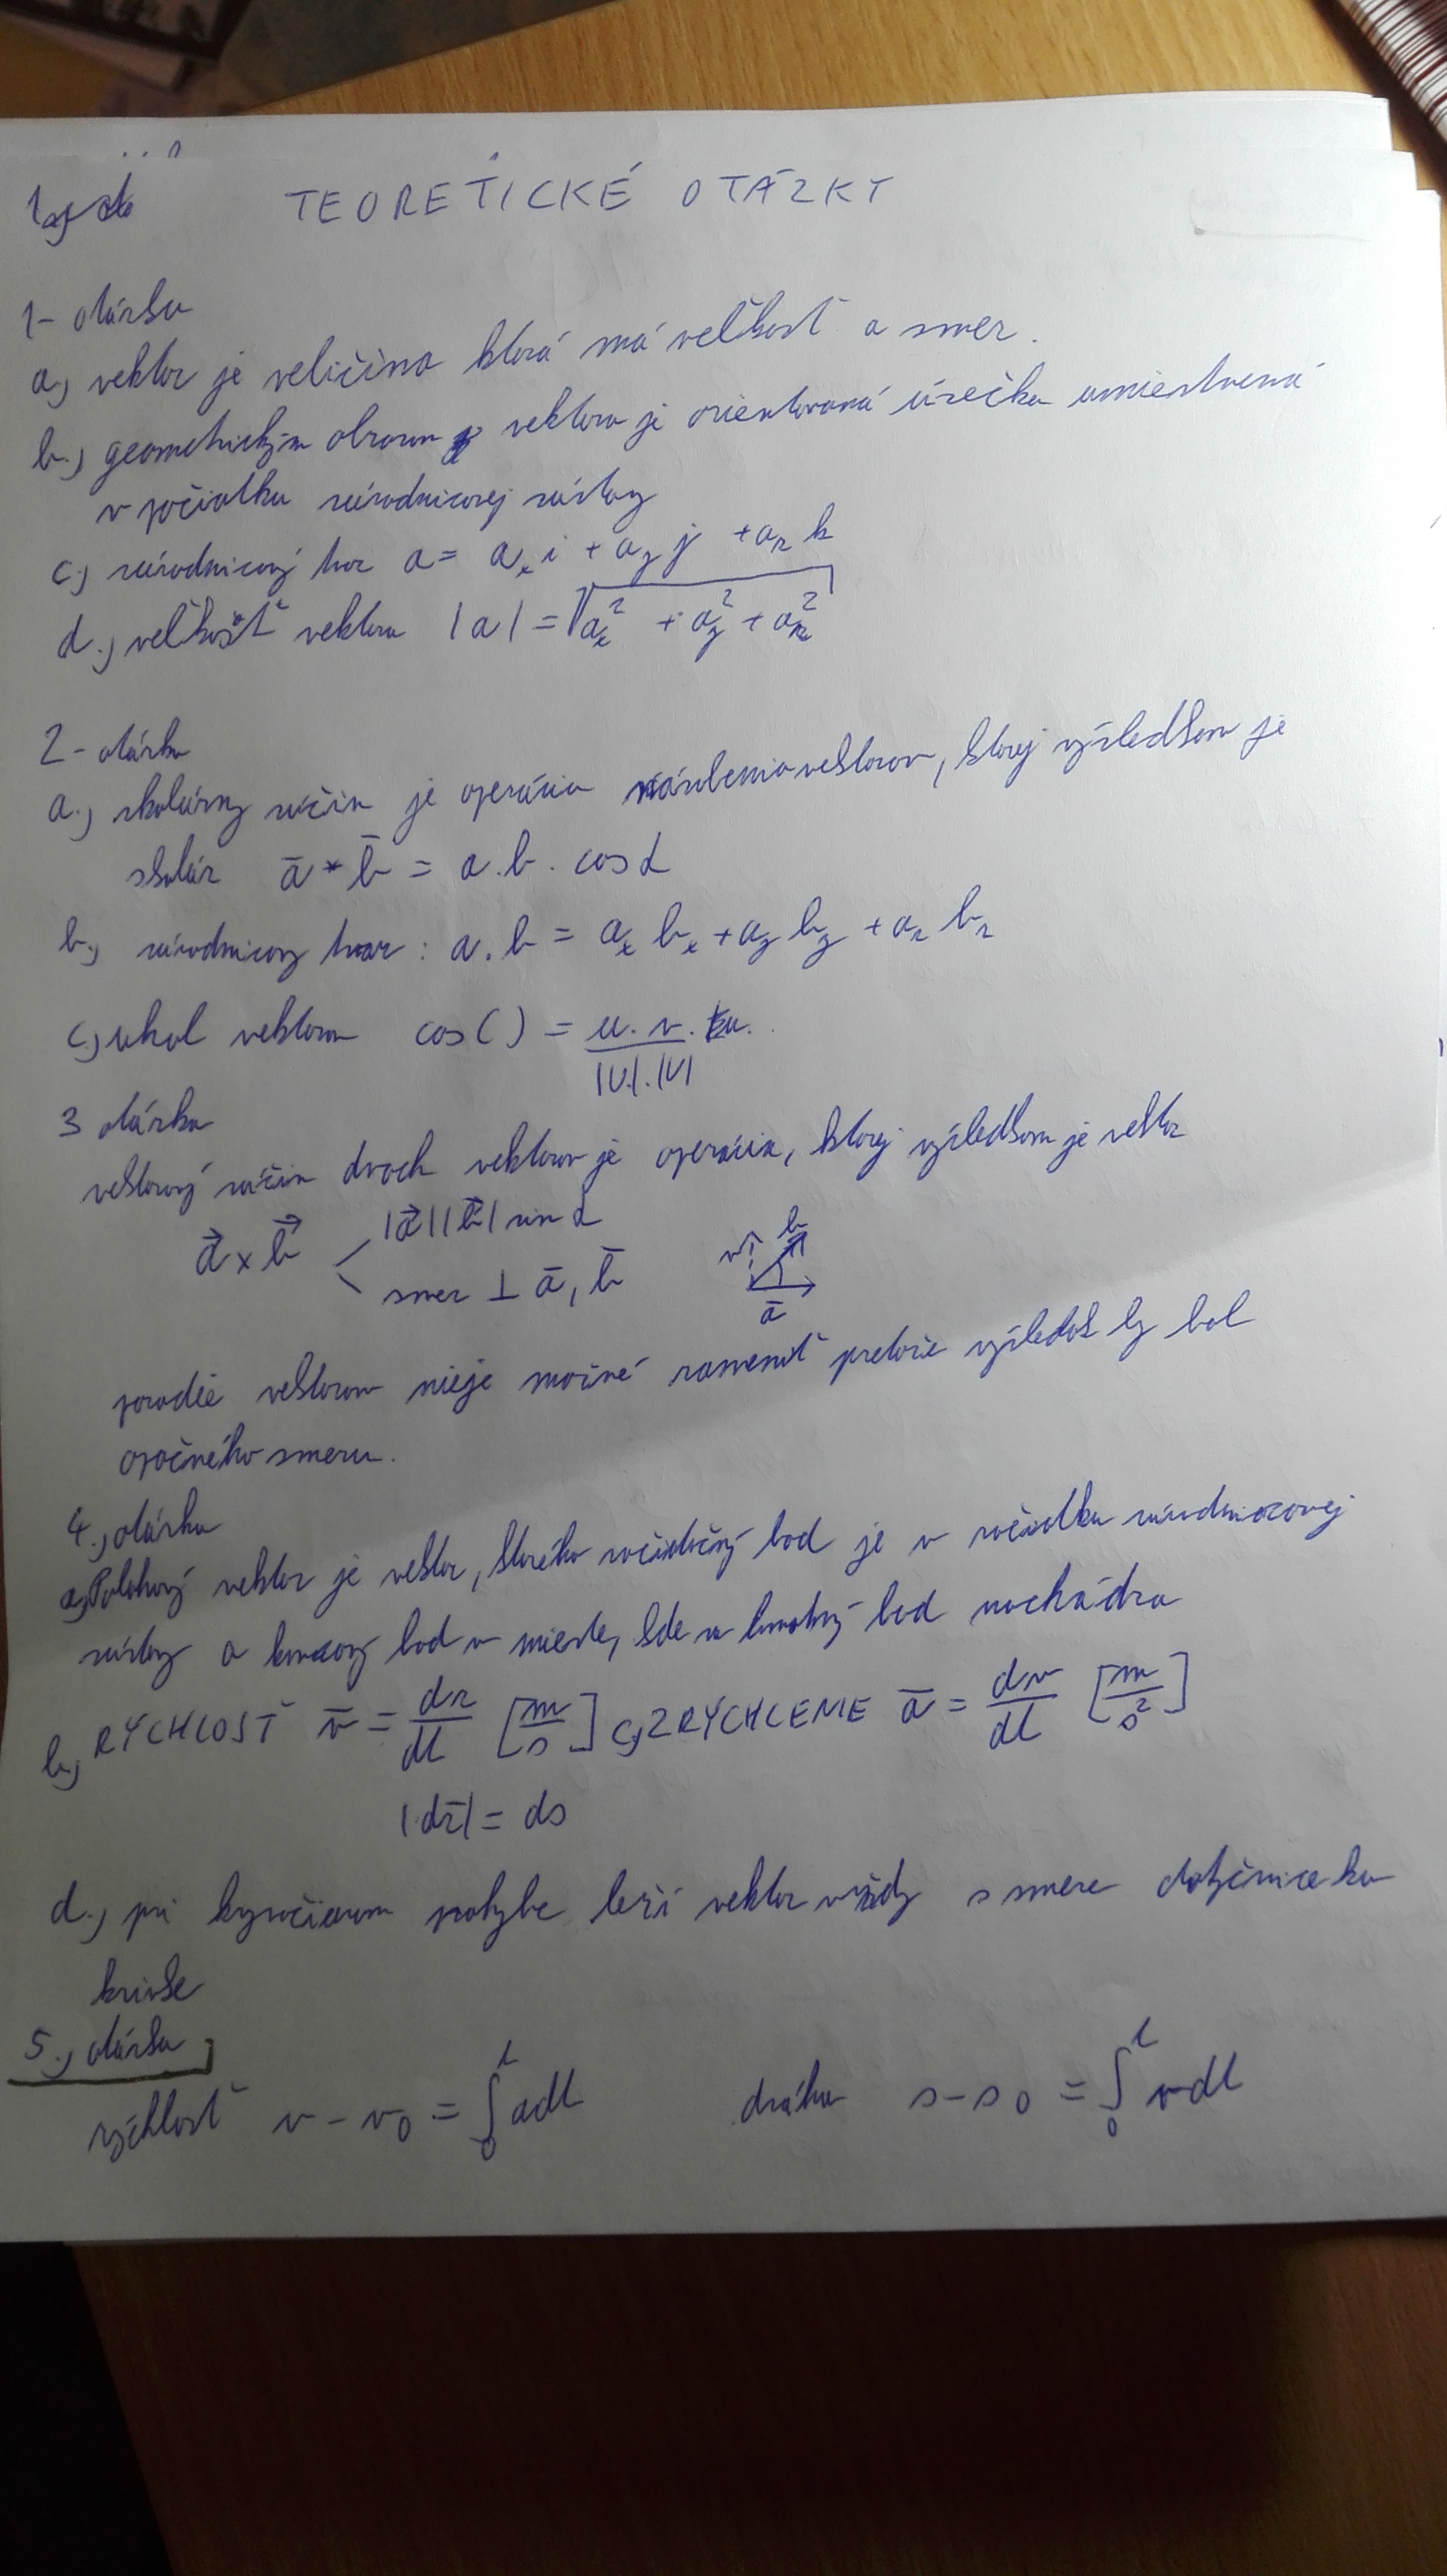 TEORETICKÉ OTÁZKY
1- otázka
a, vektor je veličina ktorá má veľkosť a smer.
b., geometrickým obrazom vektora je orientovaná úsečka umiestnená
v počiatku súradnicovej sústavy
c., súradnicový tvar a = aₓ i + a_y j + a_z k
d., veľkosť vektora |a| = √aₓ² + a_y² + a_z²
2- otázka
a., skalárny súčin je operácia násobenia vektorov, ktorej výsledkom je
skalár ā * b̄ = a . b . cos α
b, súradnicový tvar : a . b = aₓ bₓ + a_y b_y + a_z b_z
c, uhol vektorov cos( ) = u . v / |U|.|V|
3 otázka
vektorový súčin dvoch vektorov je operácia, ktorej výsledkom je vektor
a⃗ x b⃗ |a⃗||b⃗| sin α
smer ⊥ ā, b̄
v b
ā
poradie vektorov nieje možné zameniť pretože výsledok by bol
opačného smeru.
4., otázka
a, Polohový vektor je vektor, ktorého počiatočný bod je v počiatku súradnicovej
sústavy a koncový bod v mieste, kde sa hmotný bod nachádza
b, RÝCHLOSŤ v̄ = dr/dt [m/s] c, ZRÝCHLENIE ā = dv/dt [m/s²]
|dr̄| = ds
d., pri krivočiarom pohybe leží vektor v vždy v smere dotyčnice ku
krivke
5., otázka
rýchlosť v - v₀ = ∫₀ᵗ a dt dráha s - s₀ = ∫₀ᵗ v dt